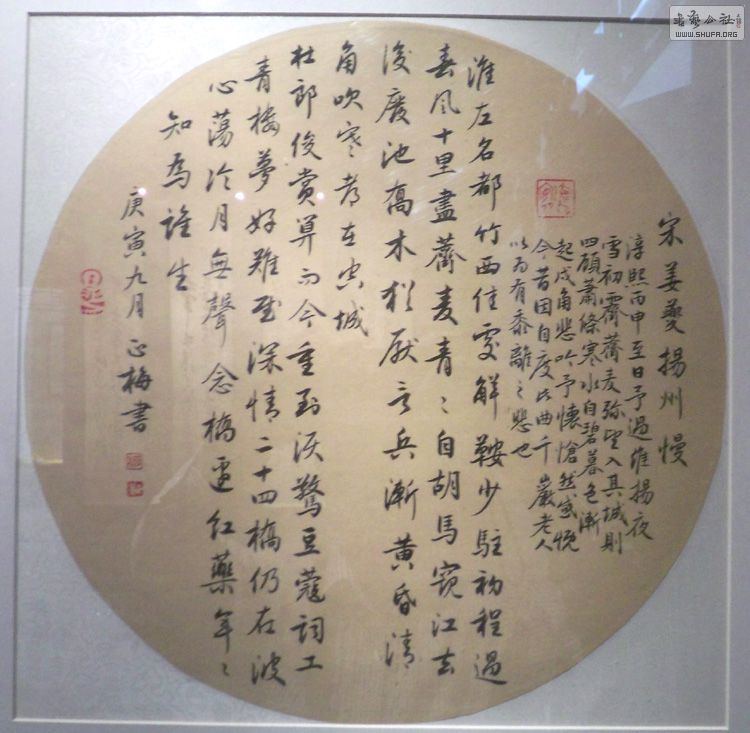 宋姜夔揚州慢
淳熙丙申至日予過維揚夜
雪初霽薺麦弥望入其城則
四顧蕭條寒水自碧暮色漸
起戍角悲吟予懷愴然感慨
今昔因自度此曲千巖老人
以為有黍離之悲也
淮左名都竹西佳處解鞍少駐初程過
春風十里盡薺麦青〻自胡馬窺江去
後廢池喬木猶厭言兵漸黄昏清
角吹寒都在空城
杜郎俊賞算而今重到須驚豆蔻詞工
青樓夢好難賦深情二十四橋仍在波
心蕩冷月無聲念橋邊紅藥年〻
知為誰生
庚寅九月正梅書
書藝公社
WWW.SHUFA.ORG